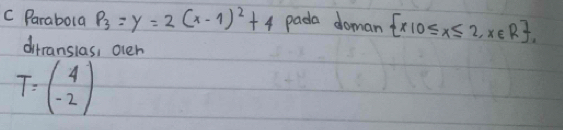 C Parabola P₃ = y = 2 (x - 1)² + 4 pada doman {x|0 ≤ x ≤ 2, x ∈ R}.
ditranslasi oleh
T = (4
-2)